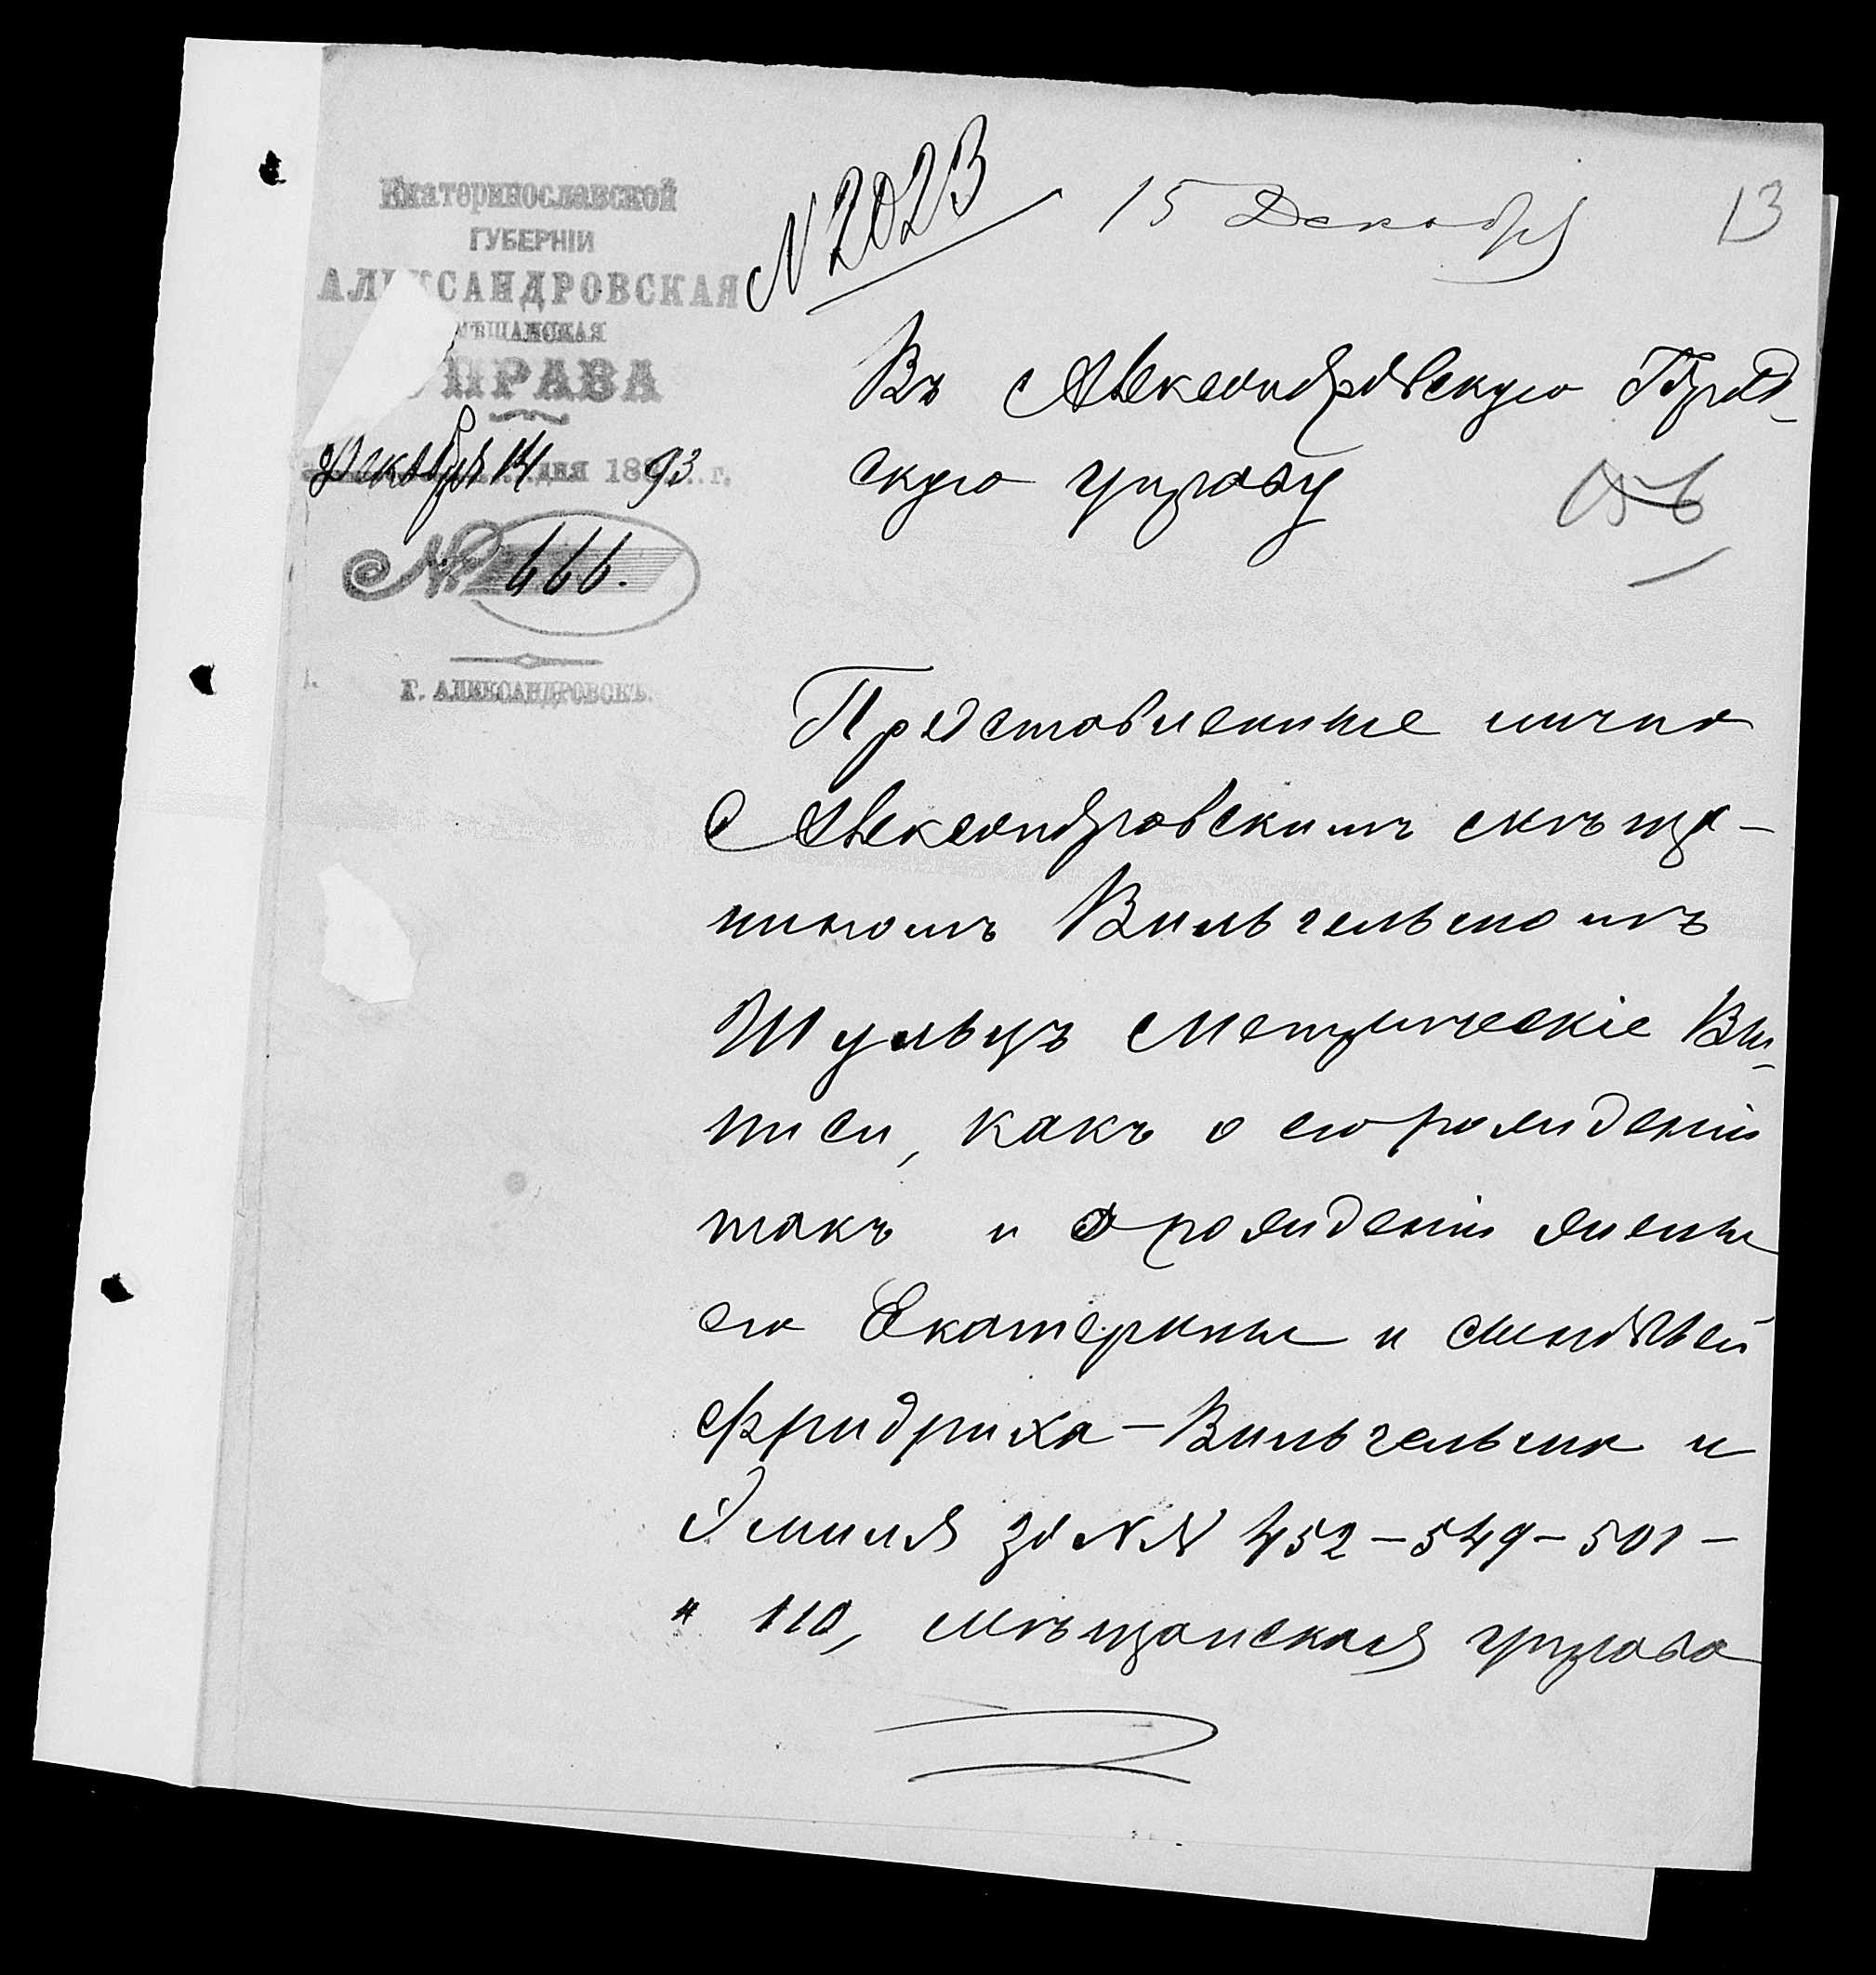 Екатеринославской
ГУБЕРНІИ
АЛЕКСАНДРОВСКАЯ
МѢЩАНСКАЯ
УПРАВА
Декабря 14 дня 1893 г.
№ 666.
Г. АЛЕКСАНДРОВСКЪ.
N 2023
15 Декабря
13
Въ Александровскую Город-
скую управу
Представленные лично
Александровскимъ мѣща-
ниномъ Вильгельмомъ
Шульцъ метрическіе Вы-
писи, какъ о его рожденіи
такъ и о рожденіи жены
его Екатерины и сыновей
Фридриха-Вильгельма и
Эмиля за NN 452-549-501-
и 110, мѣщанская управа